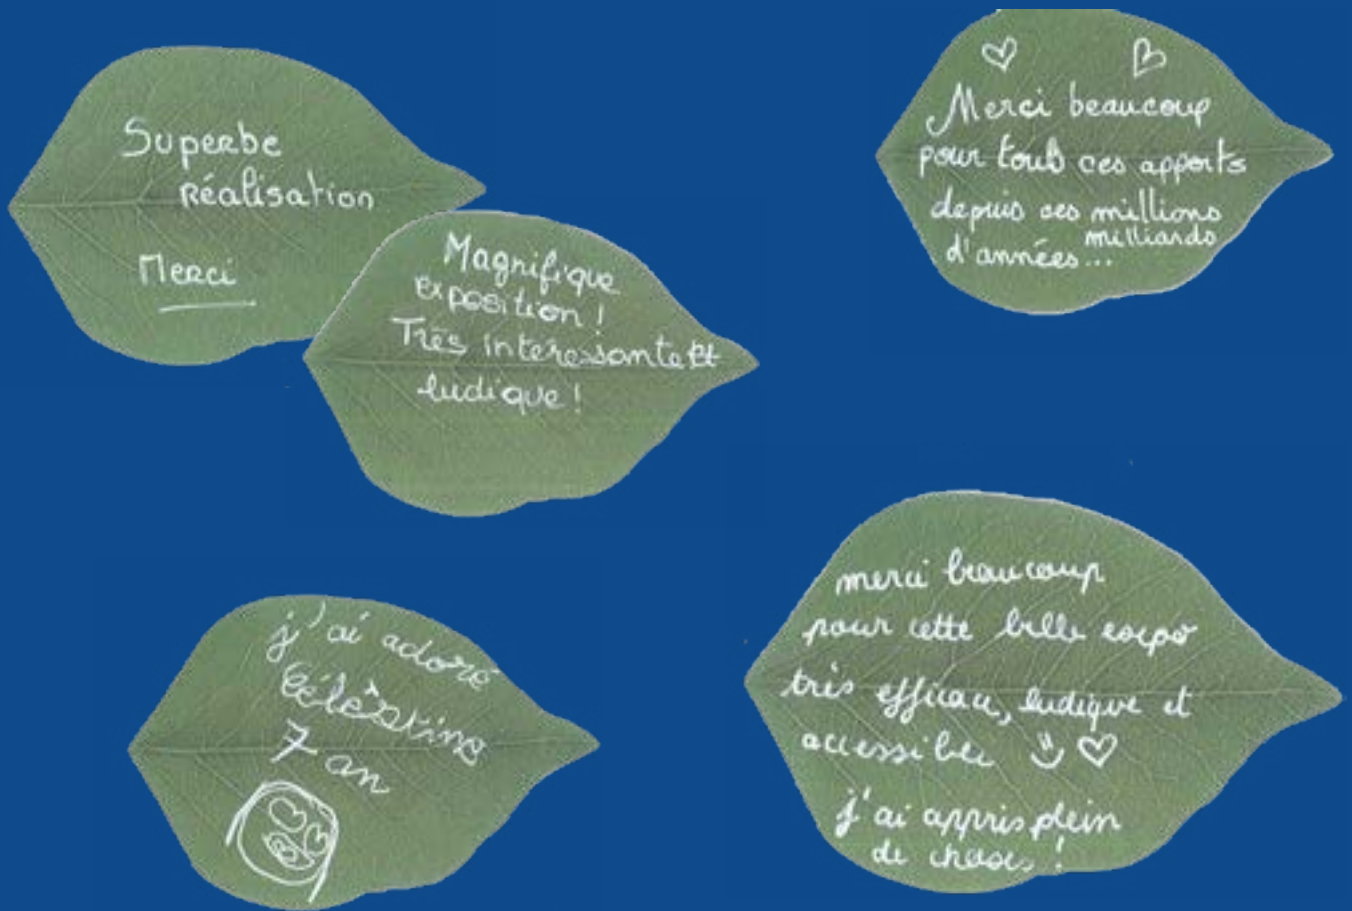 Superbe
réalisation
Merci
Magnifique
exposition !
Très intéressante et
ludique !
Merci beaucoup
pour tous ces apports
depuis ces millions
milliards
d'années...
j'ai adoré
Célèstine
7 an
merci beaucoup
pour cette belle expo
très efficace, ludique et
accessible
j'ai appris plein
de choses !